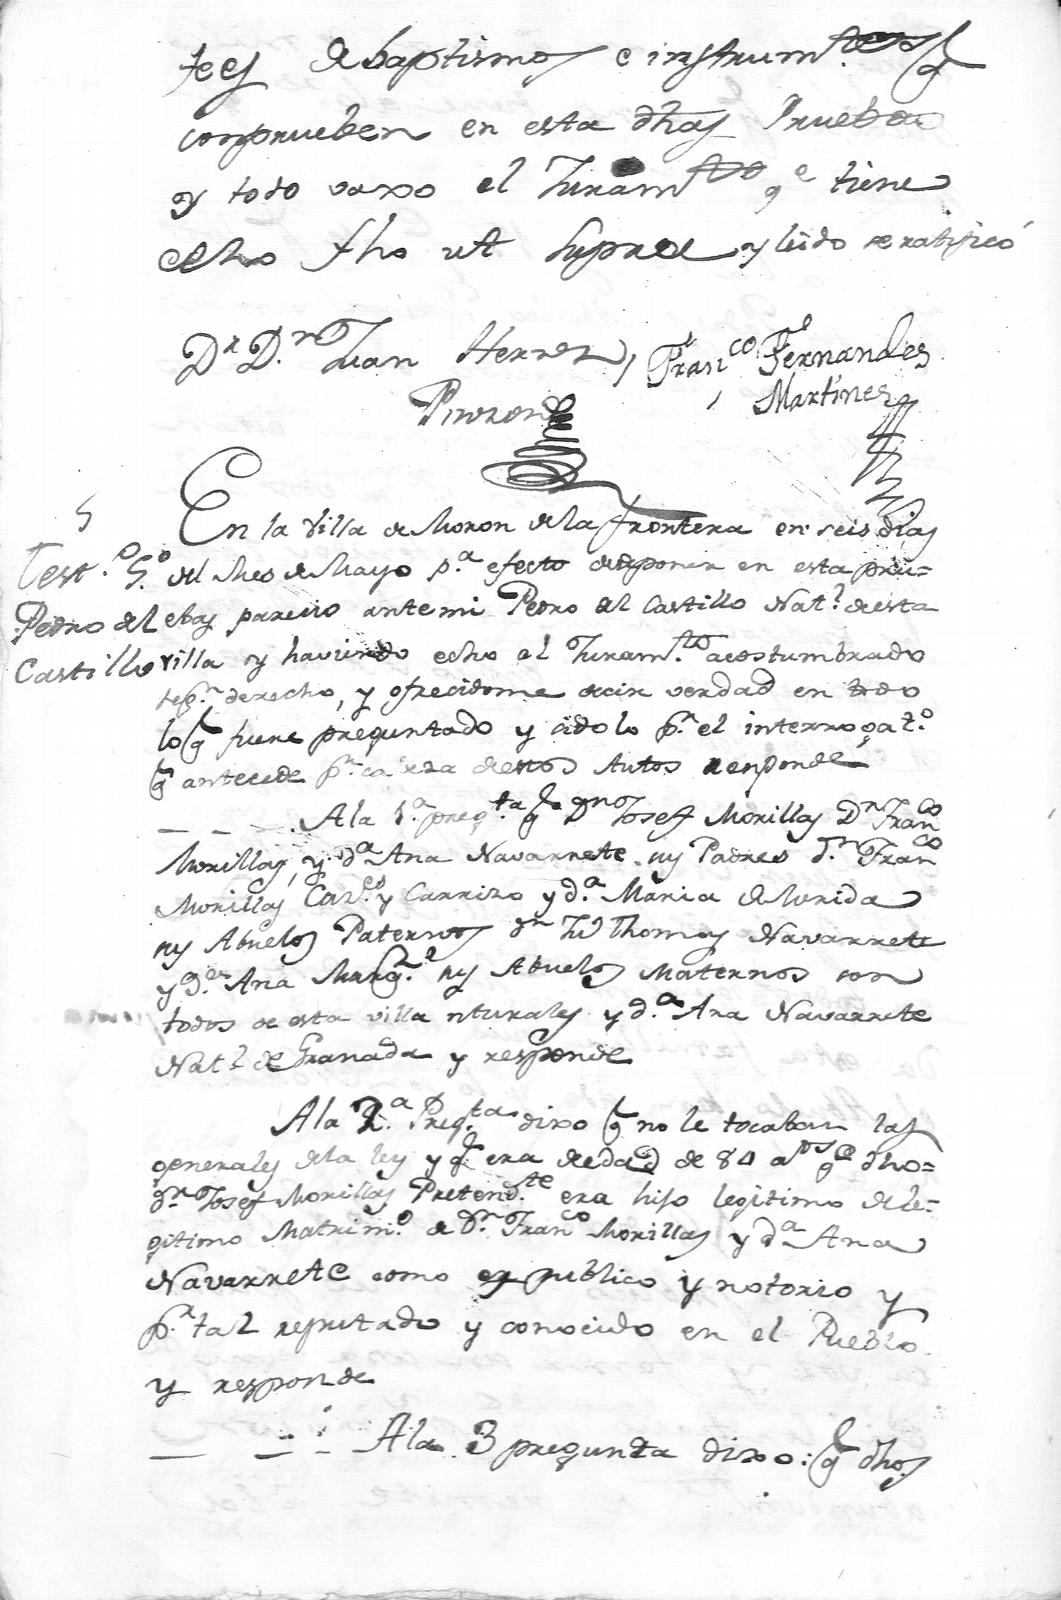 fees de baptismos e instrumtos q
comprueben en esta dhas Prueba
y todo vaxo el Juramto qe tiene
echo fho ut supra y leido se ratificó
Dr Dn Juan Herrera, Franco Fernandes
Martines
En la Villa de Moron de la frontera en seis dias
5
Testo 5o del Mes de Mayo pa efecto deponer en esta prue=
Pedro del ebas parecio ante mi Pedro del Castillo Natl de esta
Castillo villa y haviendo echo el Juramto acostumbrado
segn derecho, y ofrecidome decir verdad en todo
lo q fuere preguntado y oidolo pr el interrogato
q antecede pr caveza destos Autos responde
Ala 1a pregta q Dn Josef Morillas Dn Franco
Morillas, y da Ana Navarrete sus Padres dn Franco
Morillas y Carrizo y da Maria de Morida
sus Abuelos Paternos dn Thomas Navarrete
y da Ana sus Abuelos Maternos son
todos de esta villa nturales y da Ana Navarrete
Natl de Granada y responde
Ala 2a Pregta dixo q no le tocaban las
generales dela ley y q era de edad de 84 aos qe dho=
dn Josef Morillas Pretendte era hijo legitimo de le=
gitimo Matrimo de Dn Franco Morillas y da Ana
Navarrete como es publico y notorio y
pr tal reputado y conocido en el Pueblo
y responde
Ala 3 pregunta dixo: q dhos